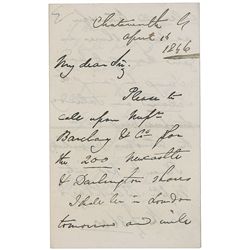 Chatsworth
April 16
1846
My dear Sir,
Please to
call upon Messrs
Barclay & Co for
the 200 Newcastle
& Darlington shares
I shall be in London
tomorrow and will